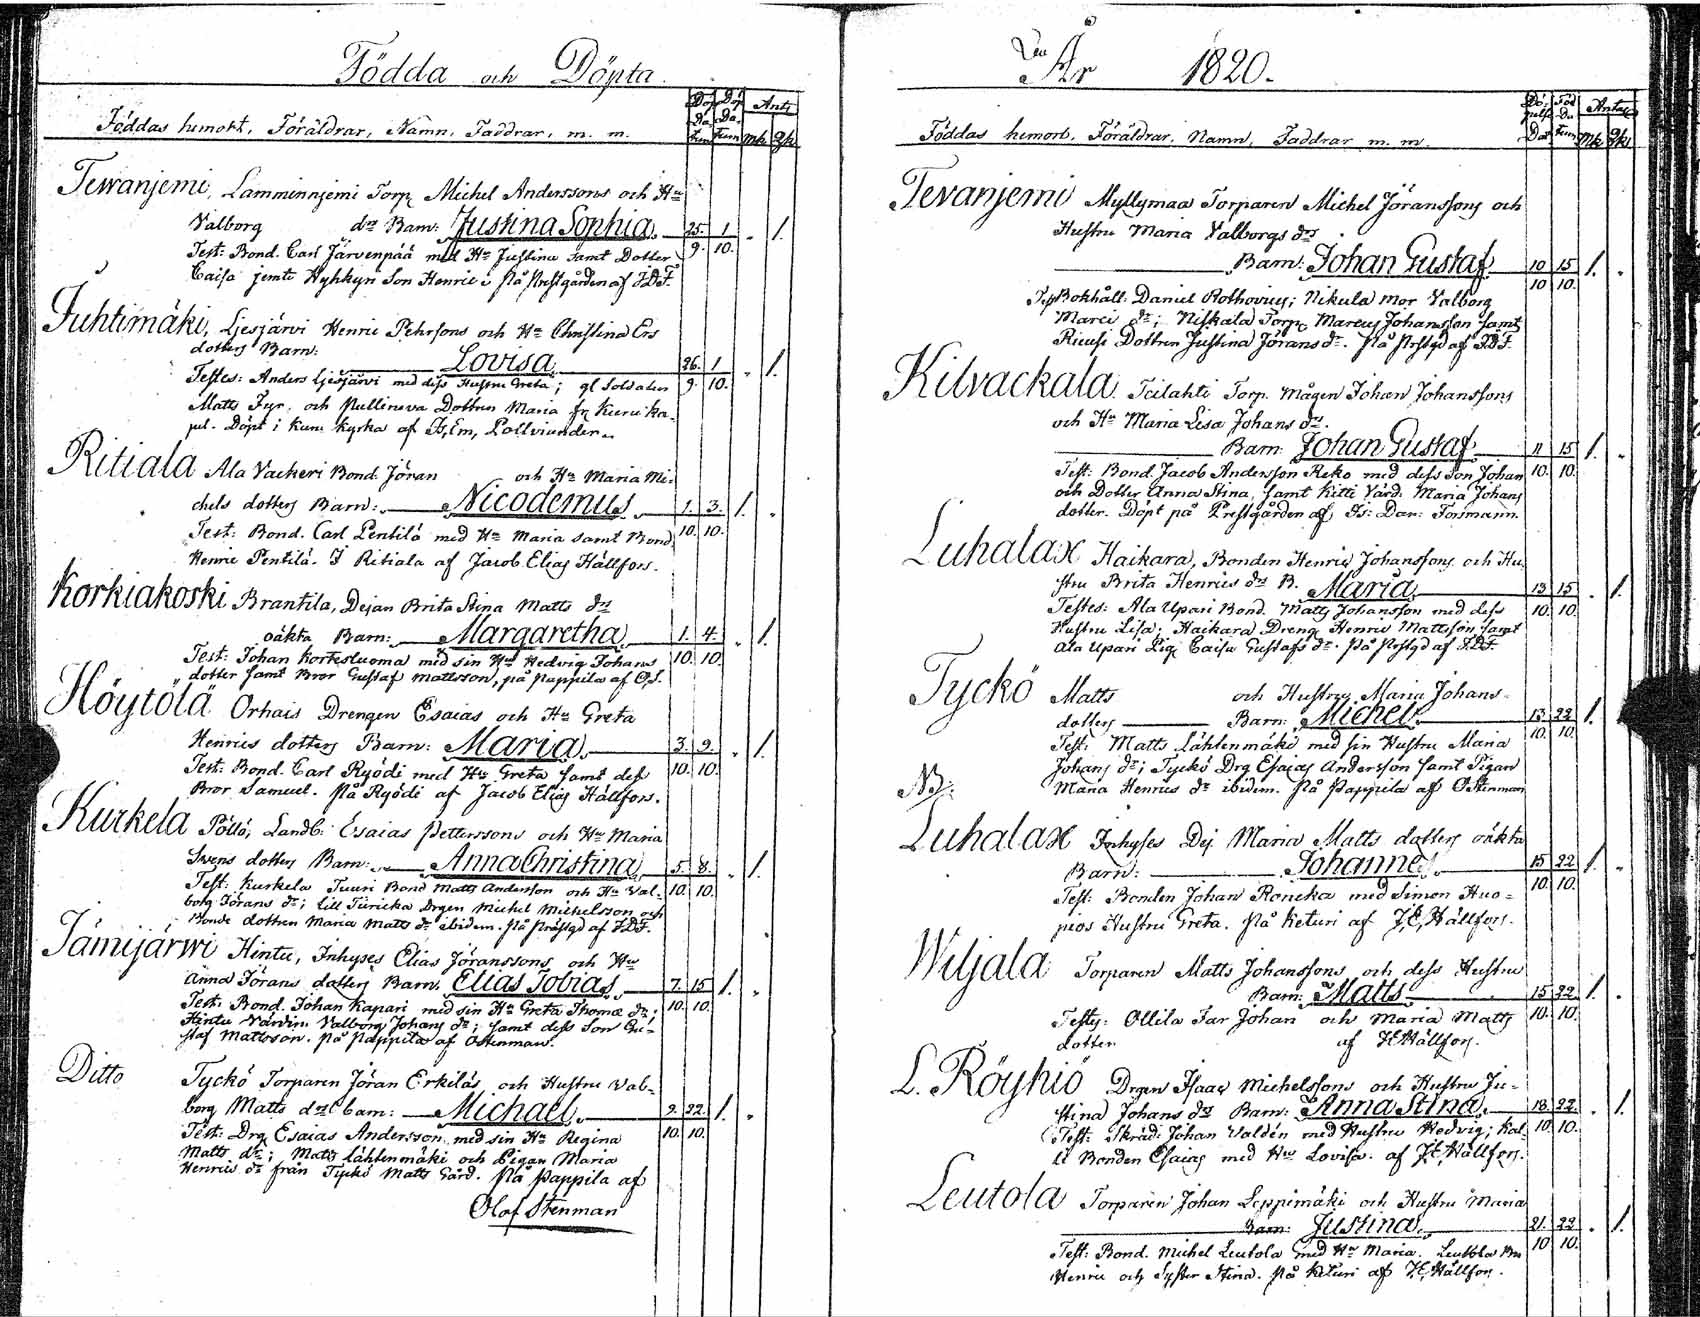 Födda och Döpta.
Föddas hemort, Föräldrar, Namn, Faddrar, m. m.
Mk Qk
Tewanjemi, Lamminnjemi Torp. Michel Anderssons och Hu
Valborg drs Barn: Justina Sophia 25. 1 1.
Test: Bond. Carl Järvenpää med Hu Justina samt Dotter 9. 10.
Caisa jemte Hyhkyn Son Henric i på Prestgården af J.D.F.
Juhtimäki, Ljesjärvi Henric Pehrsons och Hu Christina Ers
dotters Barn: Lovisa 26. 1 1.
Testes: Anders Ljesjärvi med dess Hustru Greta; gl Soldaten 9. 10.
Matts Fyr, och Dottren Maria fr Kuru ka-
pel. Döpt i Kuru Kyrka af
Ritiala Ala Vackeri Bond. Jöran och Hu Maria Mi-
chels dotters Barn: Nicodemus 1. 3. 1.
Test: Bond. Carl Pentilä med Hu Maria samt Bond. 10. 10.
Henric Pentilä. I Ritiala af Jacob Elias Hällfors.
Korkiakoski Brantila, Dejan Brita Stina Matts drs
oäkta Barn: Margaretha 1. 4. 1.
Test: Johan Kortesluoma med sin Hu Hedvig Johans 10. 10.
dotter samt Bror Gustaf Mattsson, på Pappila af O.S.
Höytölä Orhais Drengen Esaias och Hu Greta
Henrics dotters Barn: Maria 3. 9. 1.
Test: Bond. Carl Ryödi med Hu Greta samt dess 10. 10.
Bror Samuel. På Ryödi af Jacob Elias Hällfors.
Kurkela Pöllö, Landb: Esaias Petterssons och Hu Maria
Svens dotters Barn: Anna Christina 5. 8. 1.
Test: Kurkela Tuuri Bond Matts Andersson och Hu Val- 10. 10.
borg Jörans dr; Lill Turicka Drgen Michel Michelsson och
Bonde dottren Maria Matts dr ibidem. På Prästgd af J.D.F.
Jämijärwi Hintu, Inhyses Elias Jöranssons och Hu
Anna Jörans dotters Barn. Elias Tobias 7. 15 1.
Test: Bond. Johan Kapari med sin Hu Greta Thomæ dr; 10. 10.
Hintu Värdin: Valborg Johans dr; samt dess Son Gu-
staf Mattsson. På Pappila af Ostenman.
Ditto Tyckö Torparen Jöran Erkiläs och Hustru Val-
borg Matts drs barn: Michael 9. 22. 1.
Test: Drg Esaias Andersson med sin Hu Regina 10. 10.
Matts dr; Matts Lähtenmäki och Pigan Maria
Henrics dr från Tyckö Matts Gård. På Pappila af
Olof Stenman
År 1820.
Föddas hemort, Föräldrar, Namn, Faddrar m. m. Mk Qk
Tevanjemi Myllymaa Torparen Michel Jöranssons och
Hustru Maria Valborgs drs
Barn: Johan Gustaf 10 15 1.
Bokhåll: Daniel Rothovius; Nikula mor Valborg 10 10.
Marci dr; Niskala Torp. Marcus Johansson samt
Dottren Justina Jörans dr. På Prstgd af J.D.F.
Kilvackala. Teilahti Torp. Mågen Johan Johanssons
och Hu Maria Lisa Johans drs.
Barn: Johan Gustaf 11 15 1.
Test: Bond. Jacob Andersson Reko med dess Son Johan 10. 10.
och Dotter Anna Stina, samt Kitti Värd: Maria Johans
dotter. Döpt på Prestgården af Is: Dan: Forsmann.
Luhalax Haikara, Bonden Henric Johanssons och Hu-
stru Brita Henrics drs B. Maria 13 15 1.
Testes: Ala Upari Bond. Matts Johansson med dess 10. 10.
Hustru Lisa; Haikara Dreng Henric Mattsson samt
Ala Upari Pig. Caisa Gustafs dr. På Prstgd af J.D.F.
Tyckö Matts och Hustrus Maria Johans-
dotters Barn: Michel 13 22 1.
Test: Matts Lähtenmäki med sin Hustru Maria 10. 10.
Johans dr; Tyckö Drg Esaias Andersson samt Pigan
NB: Maria Henrics dr ibidem. På Pappila af OStenman
Luhalax Inhyses Dej Maria Matts dotters oäkta
Barn: Johannes 15 22 1.
Test: Bonden Johan Roncka med Simon Huo- 10. 10.
pios Hustru Greta. På Keturi af J.E. Hällfors.
Wiljala Torparen Matts Johanssons och dess Hustru
Barn: Matts 15 22. 1.
Testes: Ollila Far Johan och Maria Matts 10. 10.
dotter af JEHällfors.
L. Röyhiö Drgen Isaac Michelssons och Hustru Ju-
stina Johans drs Barn: Anna Stina 18. 22. 1.
Test: Skräd: Johan Valdén med Hustru Hedvig; Kal- 10. 10.
li Bonden Esaias med Hu Lovisa. af J.E. Hällfors.
Leutola Torparen Johan Leppimäki och Hustru Maria
Barn: Justina 21. 22 1.
Test: Bond. Michel Leutola med Hu Maria. Leutola Bro 10 10.
Henric och Syster Stina. På Keturi af J.E. Hällfors.